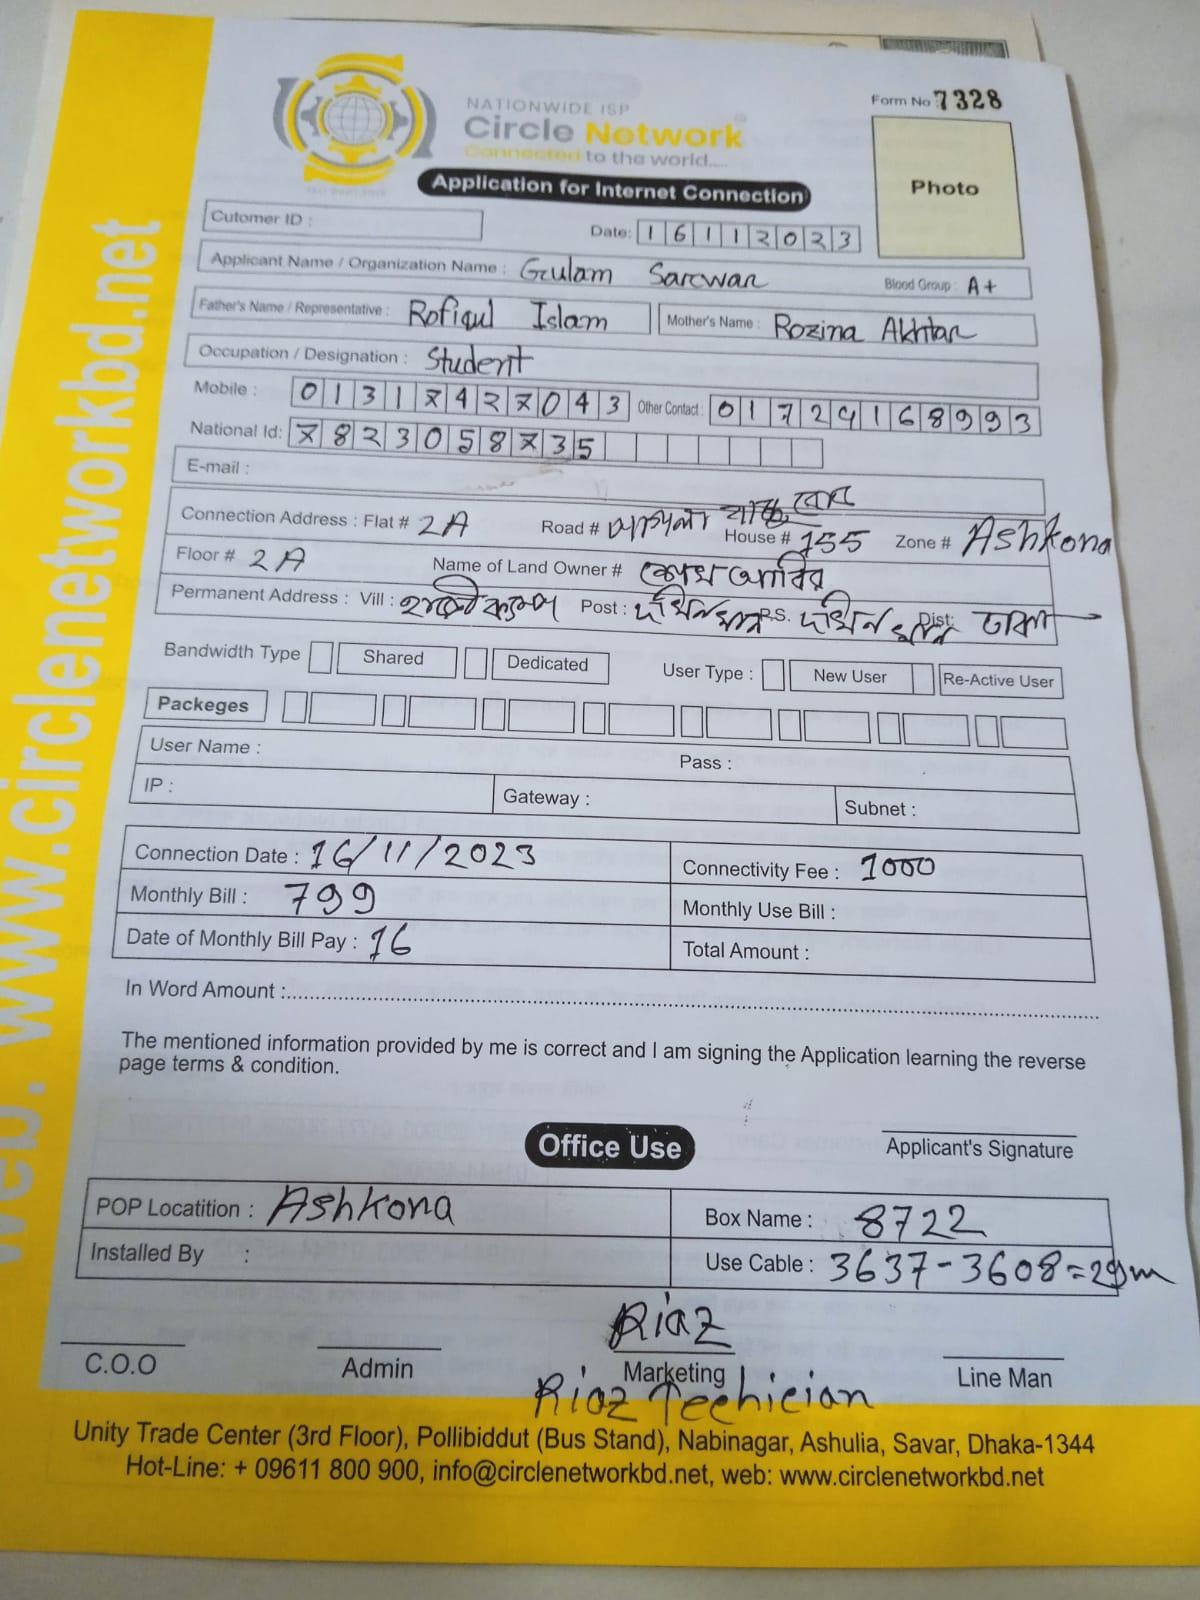 NATIONWIDE ISP
Circle Network
Connected to the world....
Form No 7328
Photo
Application for Internet Connection
Cutomer ID :
Date: 16112023
Applicant Name / Organization Name : Gulam Sarwar Blood Group : A+
Father's Name / Representative : Rofiqul Islam Mother's Name : Rozina Akhtar
Occupation / Designation : Student
Mobile : 01317427043 Other Contact : 01724168993
National Id: 7823058735
E-mail :
Connection Address : Flat # 2A Road # House # 155 Zone # Ashkona
Floor # 2A Name of Land Owner #
Permanent Address : Vill : Post : P.S. Dist: ঢাকা
Bandwidth Type Shared Dedicated User Type : New User Re-Active User
Packeges
User Name : Pass :
IP : Gateway : Subnet :
Connection Date : 16/11/2023 Connectivity Fee : 1000
Monthly Bill : 799 Monthly Use Bill :
Date of Monthly Bill Pay : 16 Total Amount :
In Word Amount :
The mentioned information provided by me is correct and I am signing the Application learning the reverse
page terms & condition.
Applicant's Signature
Office Use
POP Locatition : Ashkona Box Name : 8722
Installed By : Use Cable : 3637-3608=29m
Riaz
C.O.O Admin Marketing Line Man
Riaz Techician
Unity Trade Center (3rd Floor), Pollibiddut (Bus Stand), Nabinagar, Ashulia, Savar, Dhaka-1344
Hot-Line: + 09611 800 900, info@circlenetworkbd.net, web: www.circlenetworkbd.net
web: www.circlenetworkbd.net